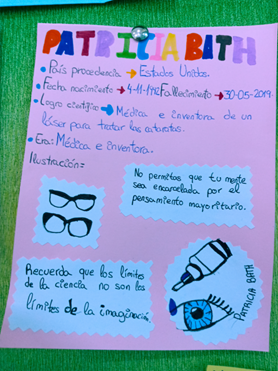 PATRICIA BATH
• País procedencia → Estados Unidos.
• Fecha nacimiento → 4-11-1942 Fallecimiento → 30-05-2019.
• Logro científico → Médica e inventora de un
láser para tratar las cataratas.
• Era: Médica e inventora.
Ilustración:
No permitas que tu mente
sea encarcelada por el
pensamiento mayoritario.
Recuerda que los límites
de la ciencia no son los
límites de la imaginación.
PATRICIA BATH